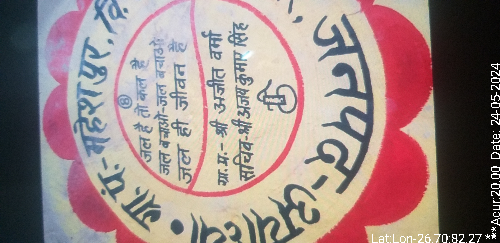 ग्रा. पं.- महेशपुर, वि
जनपद-अयोध्या.
जल है तो कल है
जल बचाओ-जल बचाओगे
जल ही जीवन है
ग्रा.प्र.- श्री अजीत वर्मा
सचिव-श्री अजय कुमार सिंह
Lat:Lon-26.70:82.27 ** Asur 20.00 Date: 24-05-2024